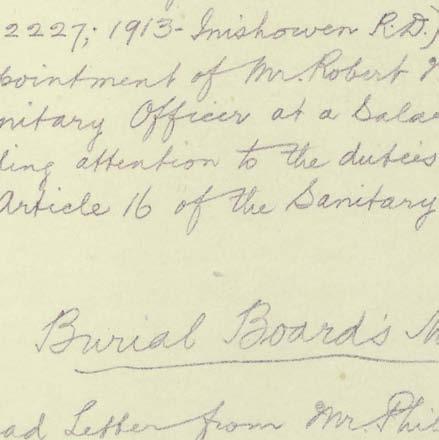 2227; 1913- Inishowen R.D.)
pointment of Mr. Robert
nitary Officer at a Sala
ding attention to the duties
Article 16 of the Sanitary
Burial Board's M
ad Letter from Mr. Phil